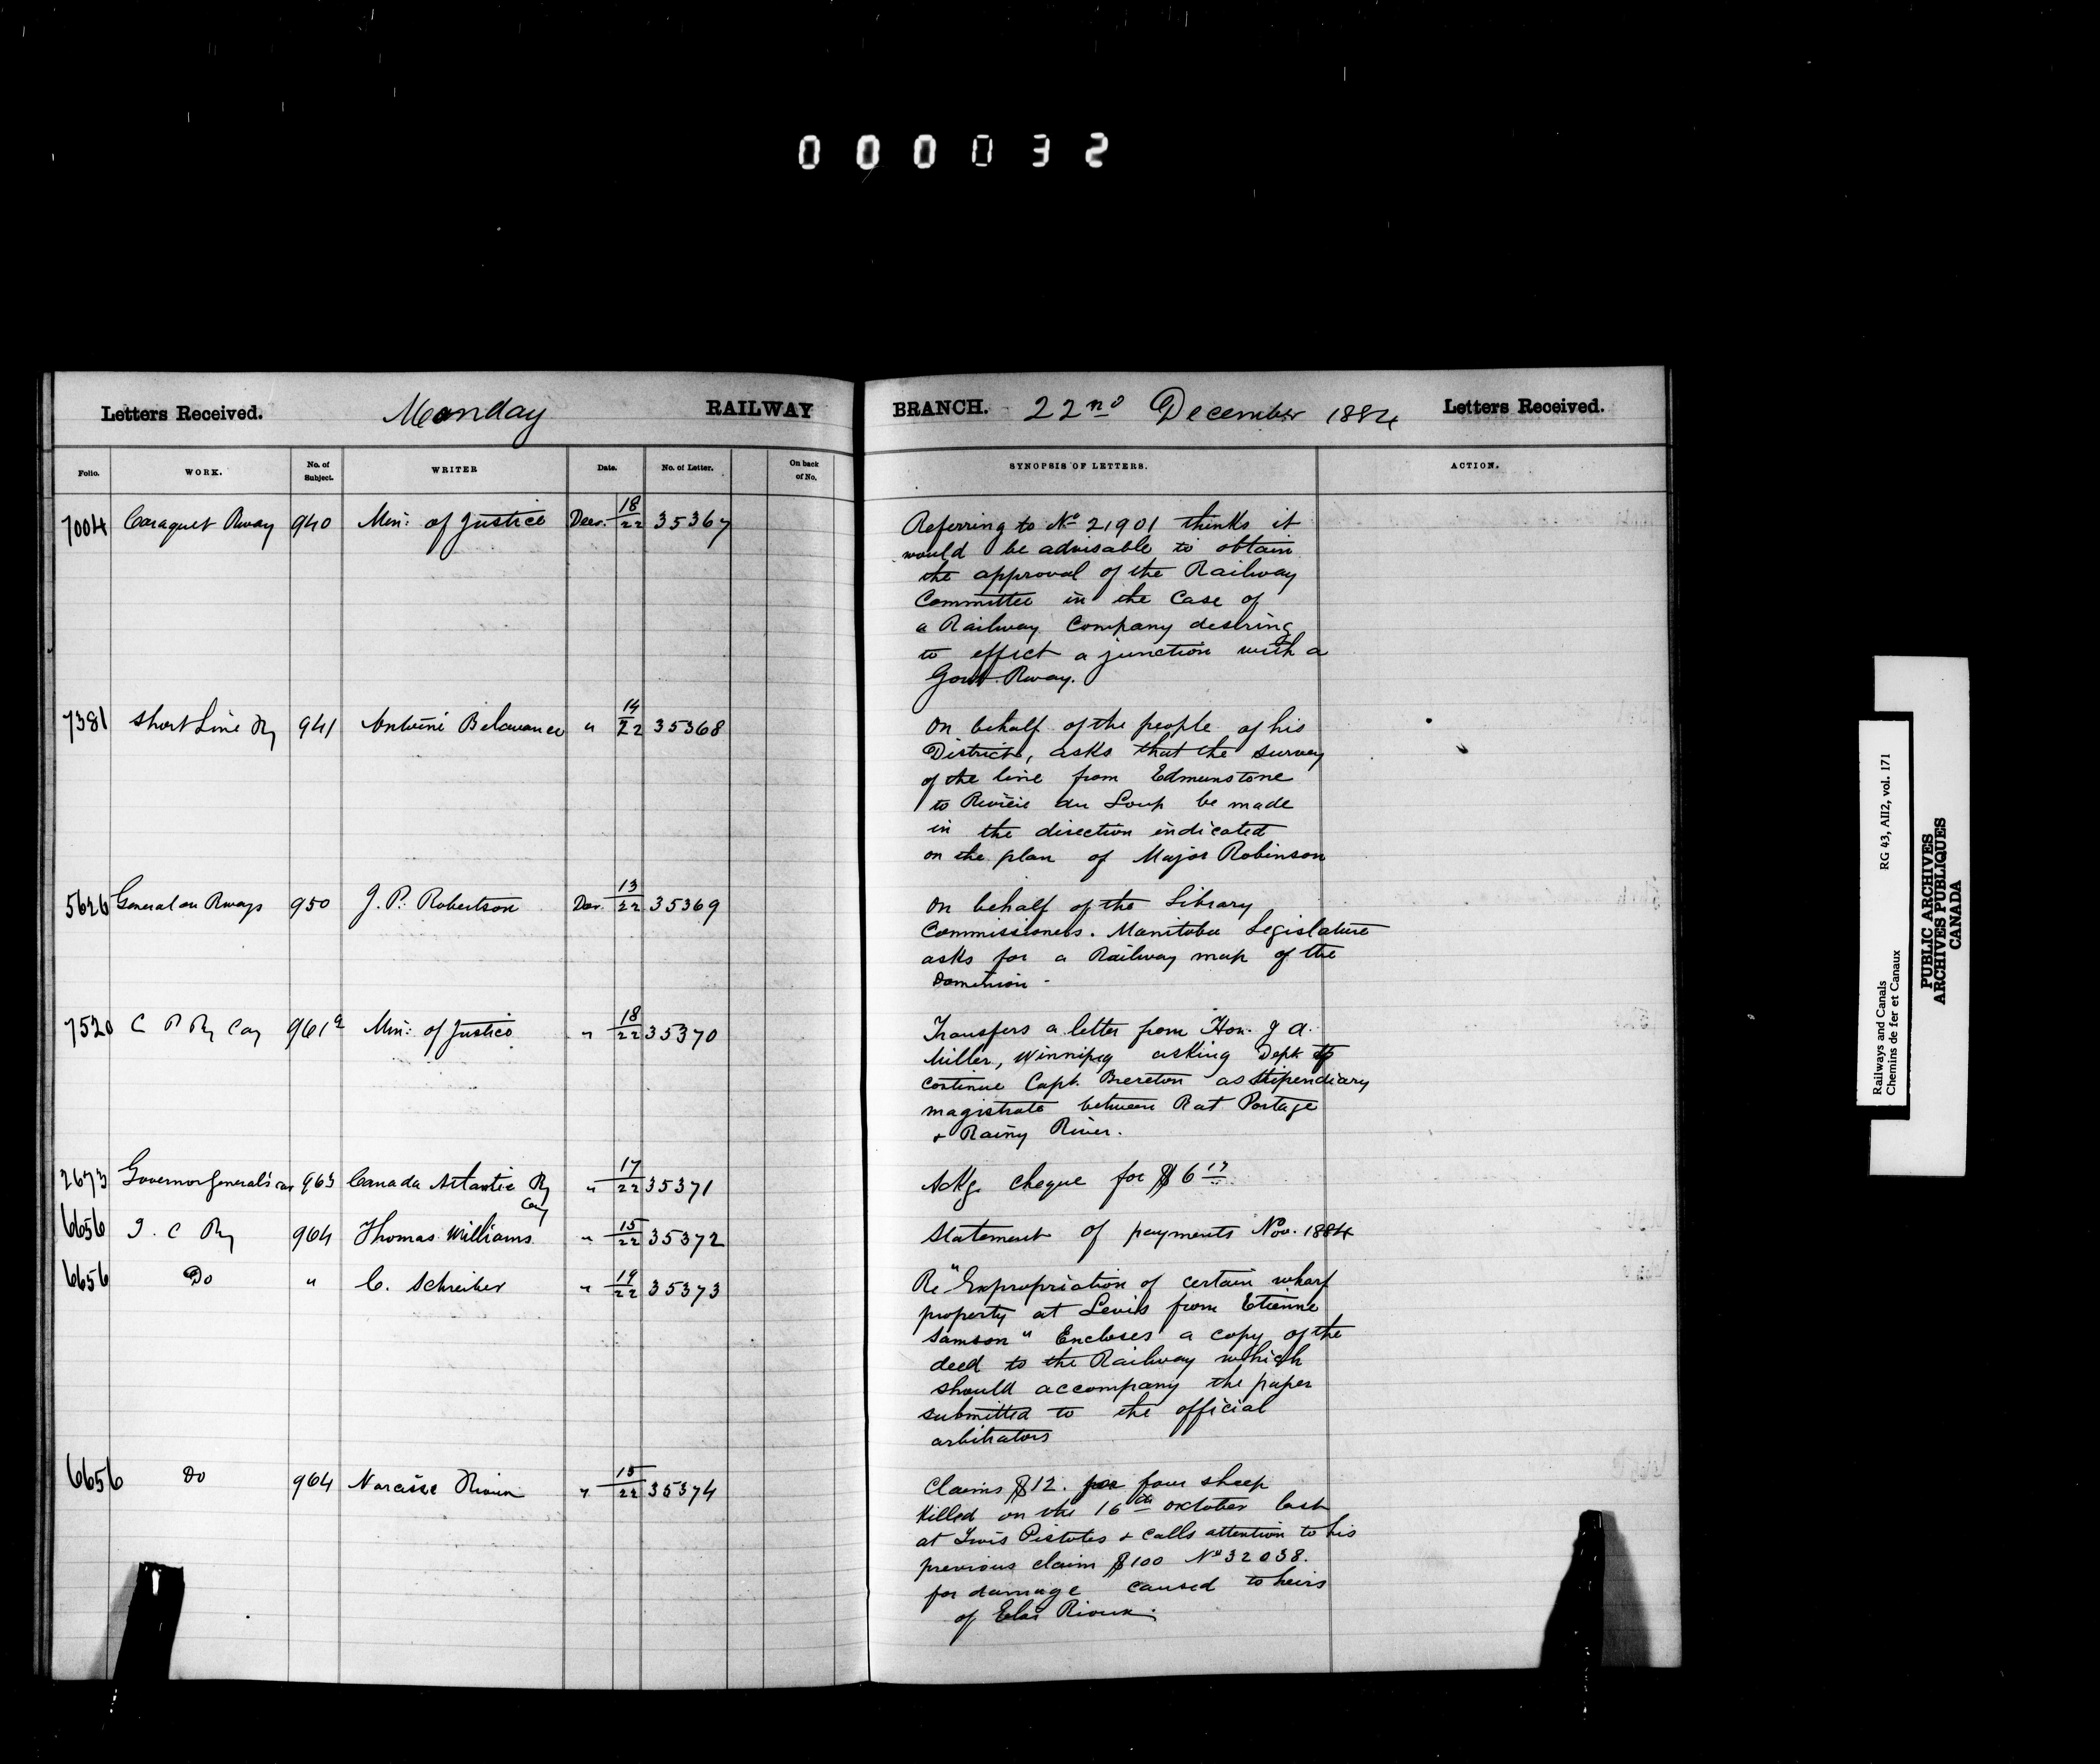 000032
Letters Received. Monday RAILWAY BRANCH. 22nd December 1884 Letters Received.
Folio. WORK. No. of Subject. WRITER Date. No. of Letter. On back of No. SYNOPSIS OF LETTERS. ACTION.
7004 Caraquet Rway 940 Min: of Justice Decr. 18/22 35367 Referring to No 21901 thinks it
would be advisable to obtain
the approval of the Railway
Committee in the Case of
a Railway Company desiring
to effect a junction with a
Govt. Rway.
7381 Short Line Ry 941 Antoine " 14/22 35368 On behalf of the people of his
District, asks that the survey
of the line from Edmunstone
to Rivière du Loup be made
in the direction indicated
on the plan of Major Robinson
5626 General on Rways 950 J. P. Robertson Decr. 13/22 35369 On behalf of the Library
Commissioners. Manitoba Legislature
asks for a Railway map of the
Dominion -
7520 C P Ry Coy 961a Min: of Justice " 18/22 35370 Transfers a letter from Hon. J a.
Miller, Winnipeg asking Dept to
continue Capt. Brereton as Stipendiary
magistrate between Rat Portage
& Rainy River.
2673 Governor General's car 963 Canada Atlantic Ry Coy " 17/22 35371 Ackg. cheque for $6 17
6656 I. C Ry 964 Thomas Williams " 15/22 35372 Statement of payments Nov. 1884
6656 Do " C. Schreiber " 19/22 35373 Re "Expropriation of certain wharf
property at Levis from Etienne
Samson" Encloses a copy of the
deed to the Railway which
should accompany the paper
submitted to the official
arbitrators
6656 Do 964 Narcisse Rioux " 15/22 35374 Claims $12. for four sheep
killed on the 16th October last
at Trois Pistoles & calls attention to his
previous claim $100 No 32038.
for damage caused to heirs
of Rioux.
Railways and Canals RG 43, AII2, vol. 171
Chemins de fer et Canaux
PUBLIC ARCHIVES
ARCHIVES PUBLIQUES
CANADA